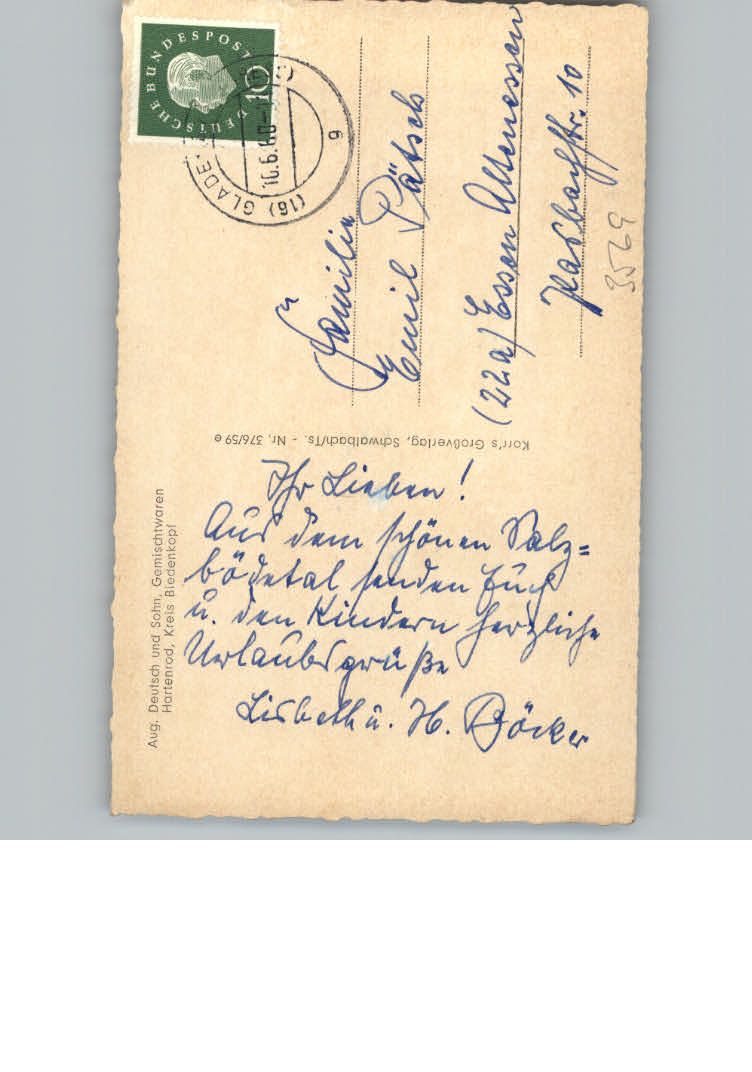 DEUTSCHE BUNDESPOST
10
(16) GLADE
10.6.60
g
Familie
Emil Pätsch
(22a) Essen Altenessen
10
3569
Korr's Großverlag, Schwalbach/Ts. - Nr. 376/59 e
Aug. Deutsch und Sohn, Gemischtwaren
Hartenrod, Kreis Biedenkopf
Ihr Lieben!
Aus dem schönen Salz=
bödetal senden Euch
u. den Kindern herzliche
Urlaubsgrüße
Lisbeth u. H. Böcker